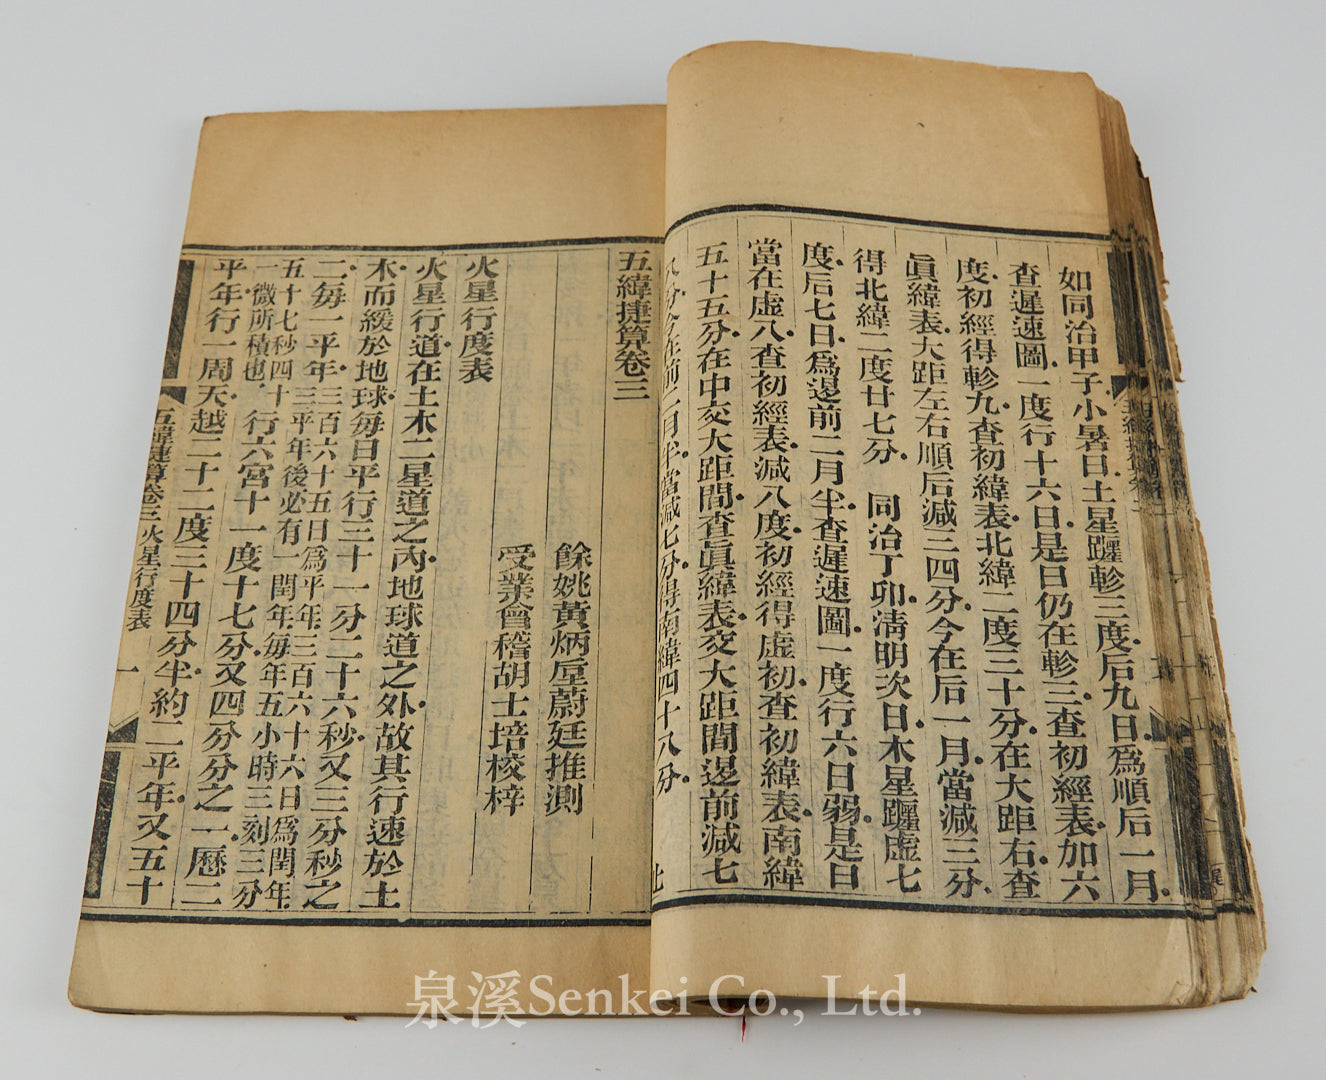 如同治甲子小暑日土星躔軫三度后九日爲順后一月
查遲速圖一度行十六日是日仍在軫三查初經表加六
度初經得軫九查初緯表北緯二度三十分在大距右查
眞緯表大距左右順后減三四分今在后一月當減三分
得北緯二度廿七分　同治丁卯淸明次日木星躔虛七
度后七日爲逿前二月半查遲速圖一度行六日弱是日
當在虛八查初經表減八度初經得虛初查初緯表南緯
五十五分在中交大距間查眞緯表交大距間逿前減七
八分今在前二月半當減七分得南緯四十八分
止
五緯捷算卷三
餘姚黃炳垕蔚廷推測
受業會稽胡士培校梓
火星行度表
火星行道在土木二星道之內地球道之外故其行速於土
木而緩於地球每日平行三十一分二十六秒又三分秒之
二每一平年三百六十五日爲平年三百六十六日爲閏年
三平年後必有一閏年每年五小時三刻三分
五十七秒四十
一微所積也行六宮十一度十七分又四分分之一歷二
平年行一周天越二十二度三十四分半約二平年又五十
五緯捷算卷三 火星行度表
一
泉溪Senkei Co., Ltd.